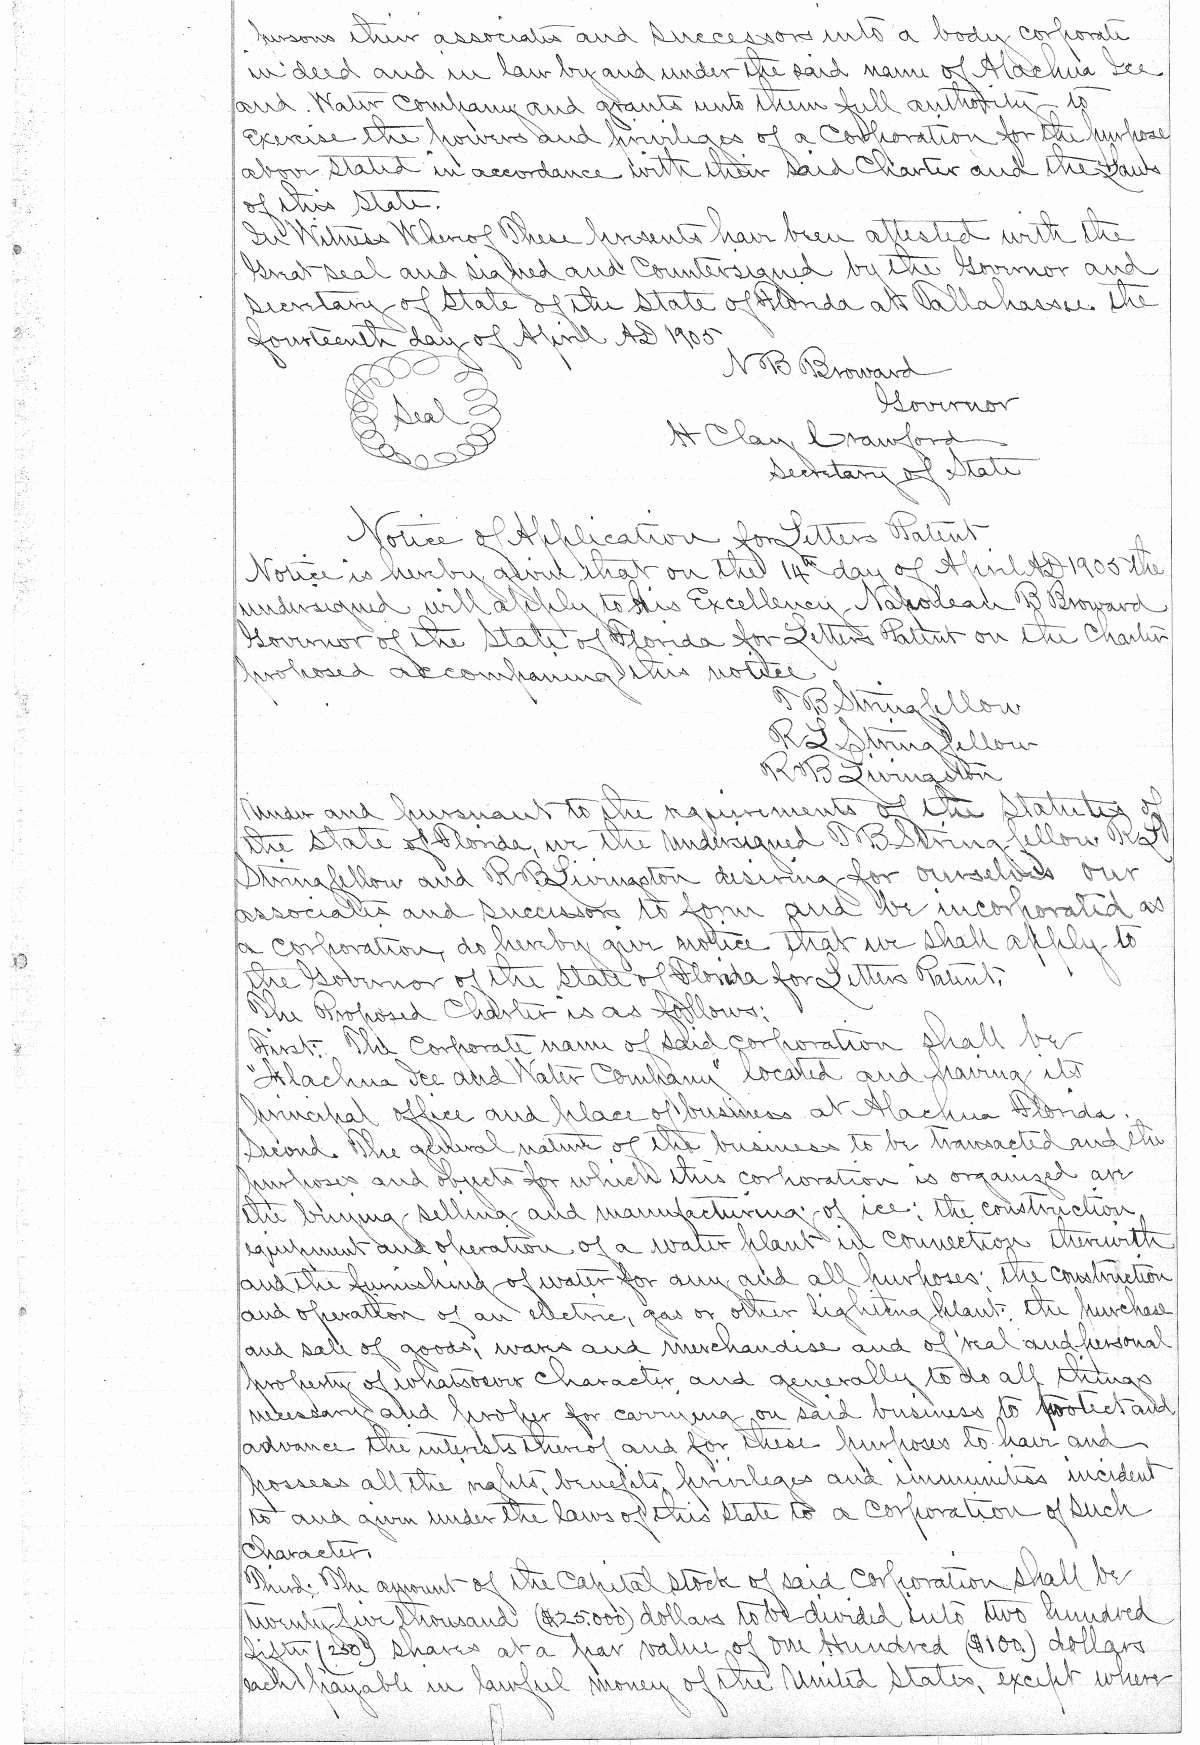 persons their associates and successors into a body corporate
in deed and in law by and under the said name of Alachua Ice
and Water Company and grants unto them full authority to
Exercise the powers and privileges of a Corporation for the purpose
above stated in accordance with their said Charter and the Laws
of this State.
In Witness Whereof These presents have been attested with the
Great seal and signed and Countersigned by the Governor and
Secretary of State of the State of Florida at Tallahassee. the
fourteenth day of April AD 1905
N B Broward
Governor
Seal
H Clay Crawford
Secretary of State
Notice of Application for Letters Patent
Notice is hereby given that on the 14th day of April AD 1905 the
undersigned will apply to His Excellency Napolean B Broward
Governor of the State of Florida for Letters Patent on the Charter
proposed accompaning this notice
T B Stringfellow
R L Stringfellow
R B Livingston
Under and pursuant to the requirements of the Statutes of
the State of Florida, we the undersigned T B Stringfellow R L
Stringfellow and R B Livingston desiring for ourselves our
associates and successors to form and be incorporated as
a corporation, do hereby give notice that we shall apply to
the Governor of the State of Florida for Letters Patent.
The Proposed Charter is as follows:
First. The corporate name of said corporation shall be
"Alachua Ice and Water Company" located and having its
principal office and place of business at Alachua Florida.
Second. The general nature of the business to be transacted and the
purposes and objects for which this corporation is organized are
the buying selling and manufacturing of ice; the construction,
equipment and operation of a water plant in connection therewith
and the furnishing of water for any and all purposes; the construction
and operation of an electric, gas or other lighting plant; the purchase
and sale of goods, wares and merchandise and of real and personal
property of whatsoever character and generally to do all things
necessary and proper for carrying on said business to protect and
advance the interests thereof and for these purposes to have and
possess all the rights, benefits, privileges and immunities incident
to and given under the laws of this State to a Corporation of such
Character.
Third: The amount of the Capital stock of said corporation shall be
twenty five thousand ($25.000) dollars to be divided into two hundred
fifty (250) shares at a par value of one Hundred ($100.) dollars
each payable in lawful money of the United States, except where